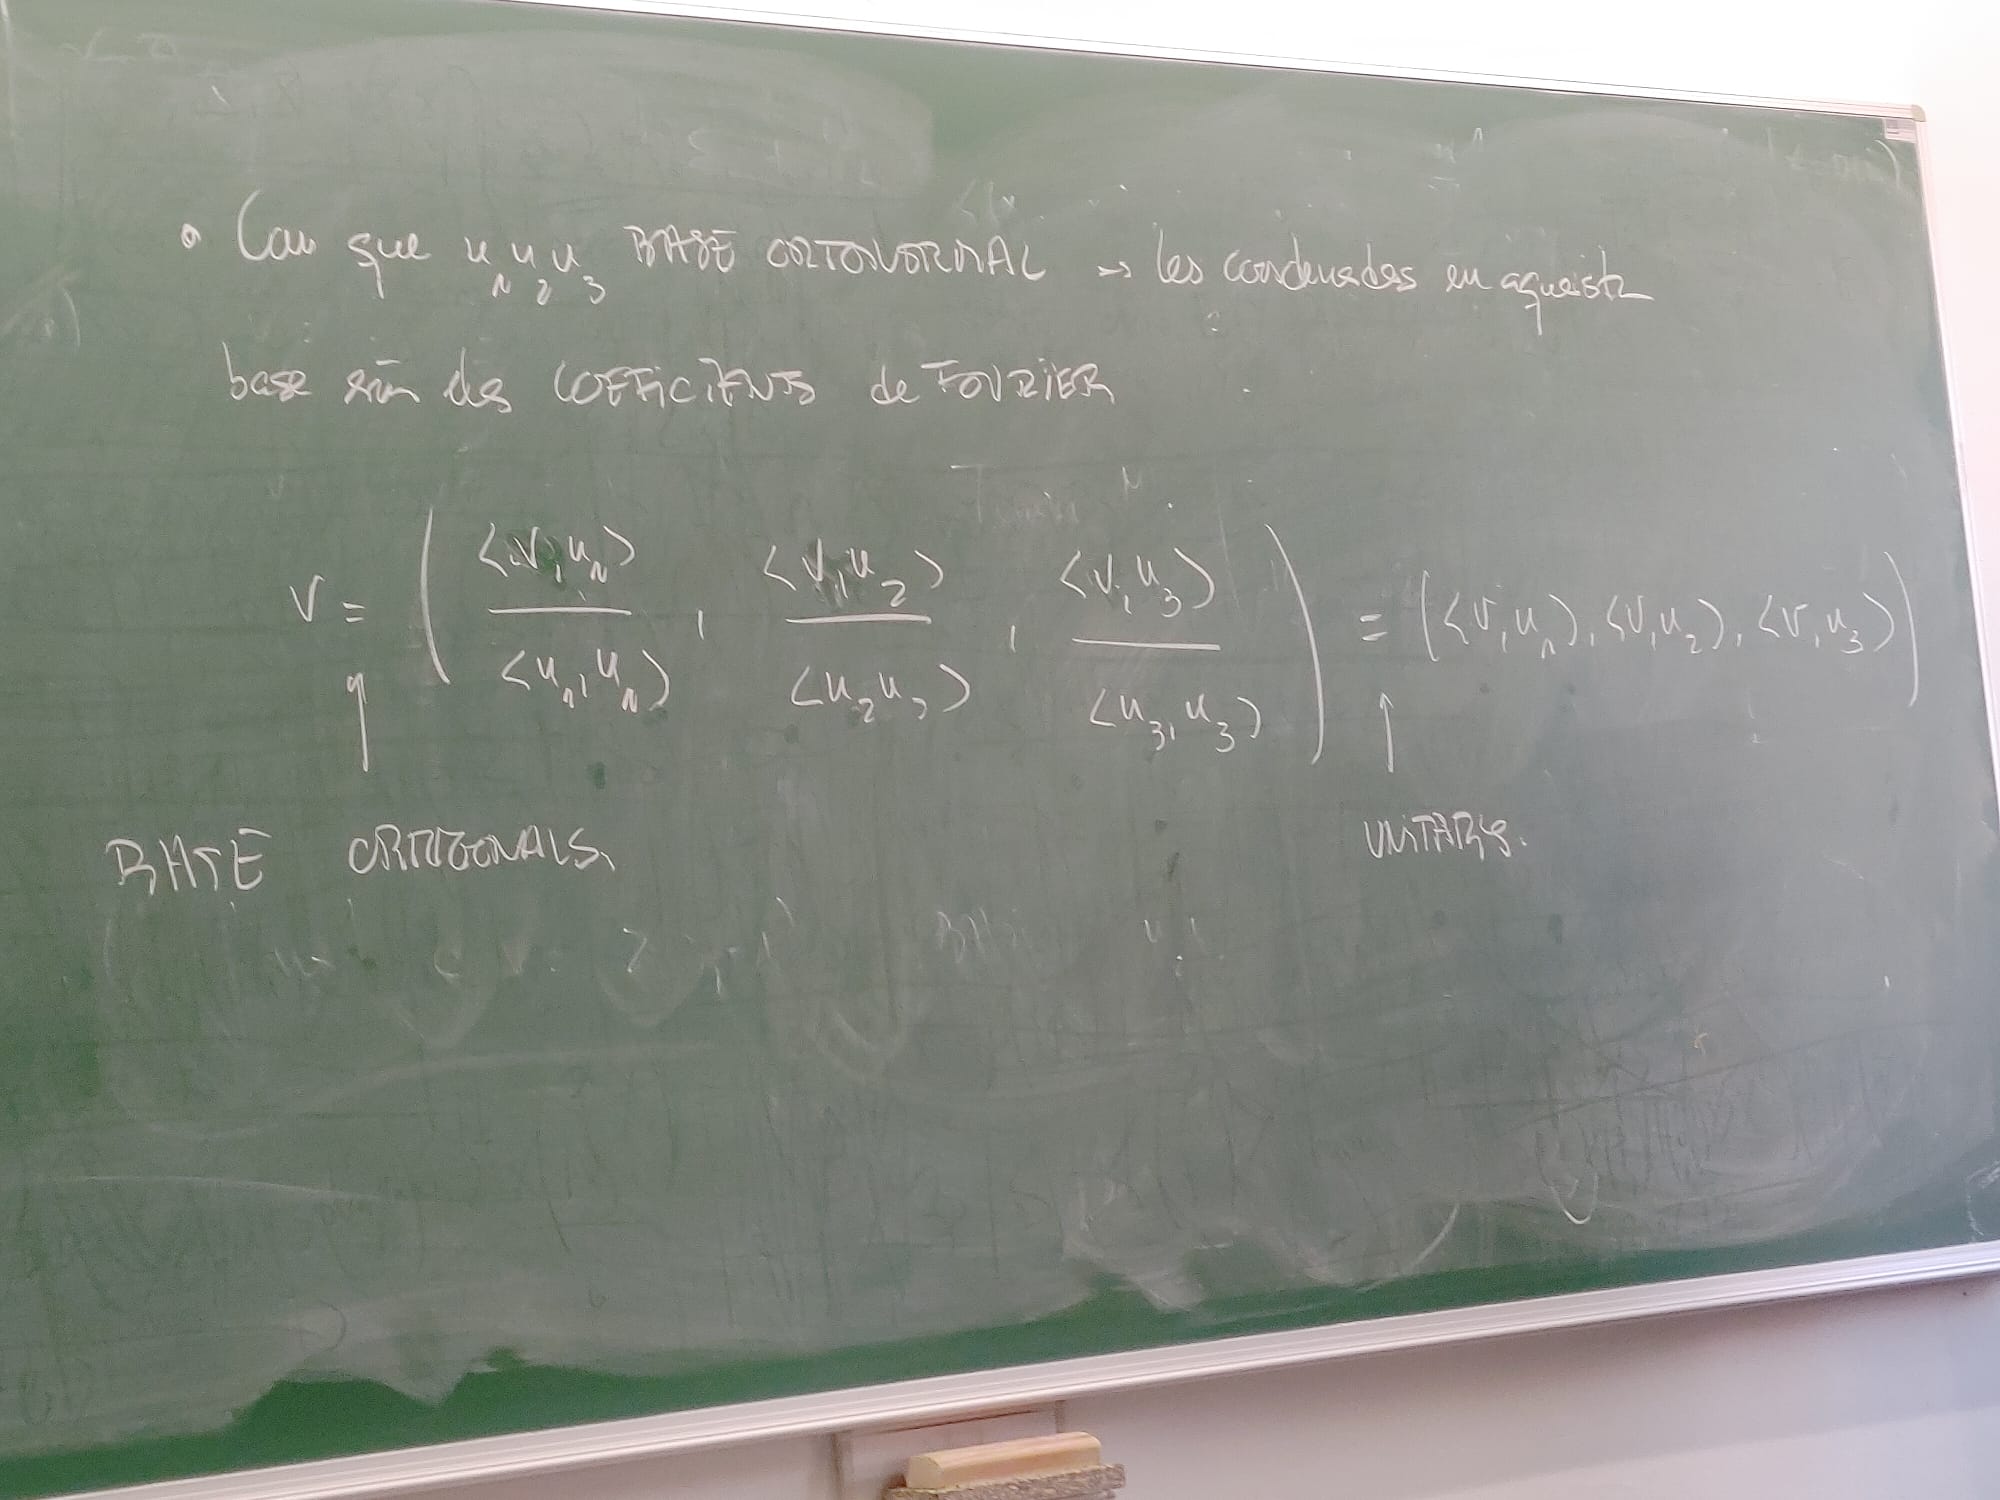 • Com que u₁ u₂ u₃ BASE ORTONORMAL → les coordenades en aquesta
base són els COEFICIENTS de FOURIER
v = ( <v,u₁> / <u₁,u₁> , <v,u₂> / <u₂ u₂> , <v,u₃> / <u₃,u₃> ) = (<v,u₁>, <v,u₂>, <v,u₃>)
BASE ORTOGONALS. UNITARIS.